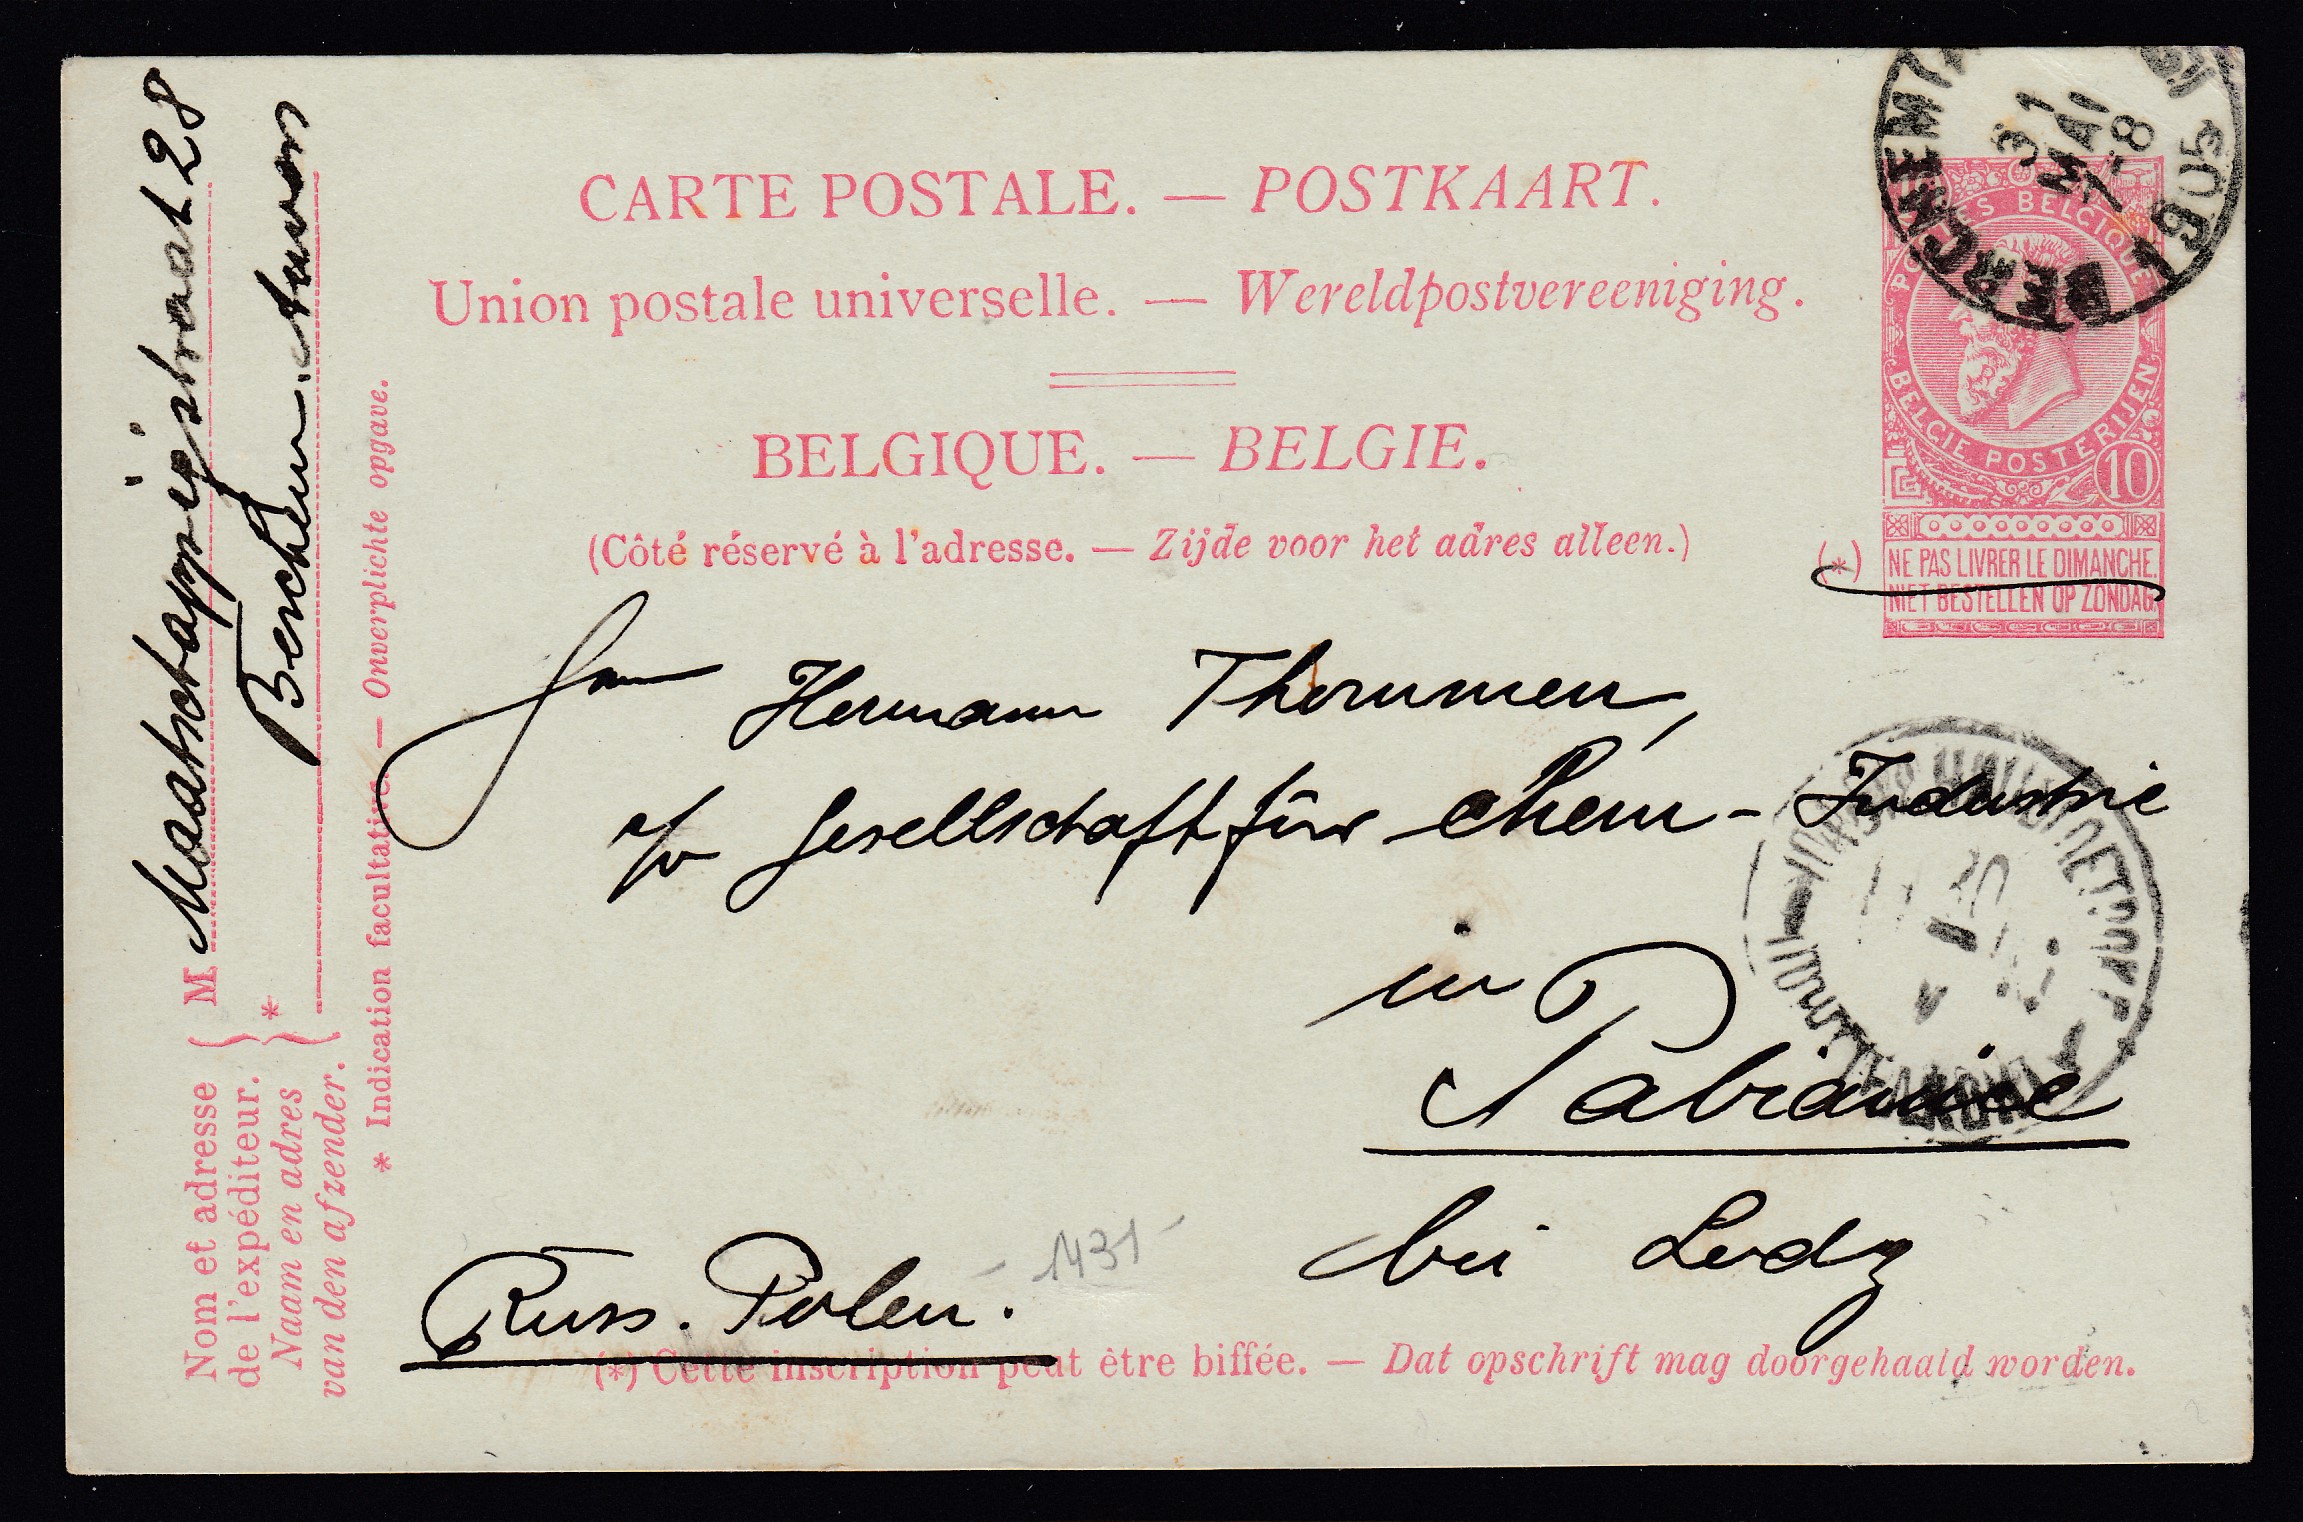 CARTE POSTALE. — POSTKAART.
Union postale universelle. — Wereldpostvereeniging.
BELGIQUE. — BELGIE.
(Côté réservé à l'adresse. — Zijde voor het adres alleen.)
BERCHEM
31
MAI
7-8
1905
POSTES BELGIQUE
BELGIE POSTERIJEN
10
(*) NE PAS LIVRER LE DIMANCHE.
NIET BESTELLEN OP ZONDAG.
Nom et adresse
de l'expéditeur.
Naam en adres
van den afzender.
M Maatschappijstraat 28
* Berchem
* Indication facultative. — Onverplichte opgave.
Herrn Hermann Thommen,
p/a Gesellschaft für Chem-Industrie
in
Pabianice
bei Lodz
Russ. Polen.
1431
(*) Cette inscription peut être biffée. — Dat opschrift mag doorgehaald worden.